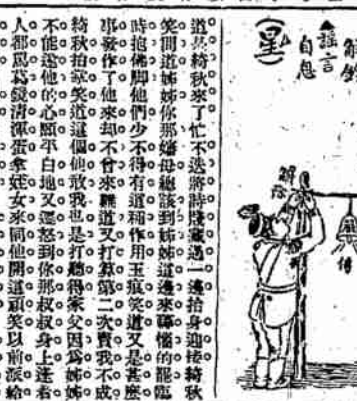 ▲謠言
自息
(星)
解鈴
傳
道是綺秋來了忙不迭將詩牋藏過一邊抬身迎接綺秋
笑問道姊姊你那嬸母總該到姊姊這邊來聒惱的罷臨
時抱佛脚他們少不得有這稱作用玉痕笑道又是甚麼
事發作了他來却不曾來難道又打算第二次賣我不成
綺秋拍掌笑道這個他放我也是打聽得家父因爲姊姊
不能遂他的心願平白地又遷怒到你那叔叔身上逢着
人都罵葛鏡清渾蛋拿姪女來同他開這頑笑以前派給